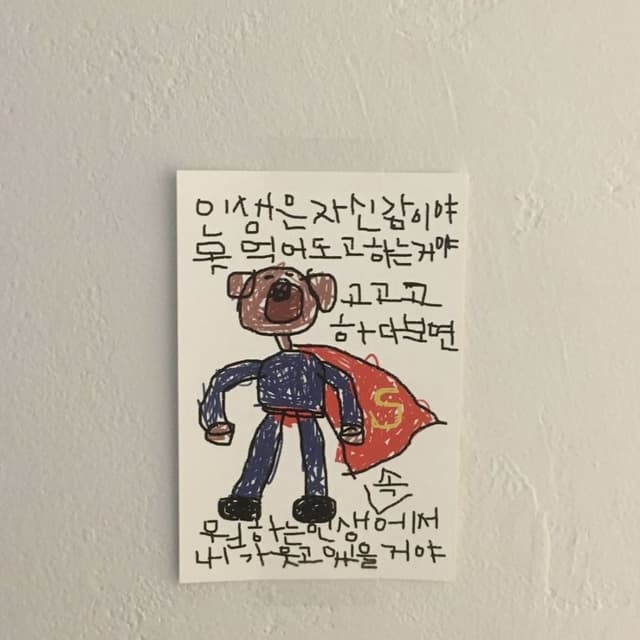 인생은 자신감이야
못 먹어도 고 하는거야
고고고
하다보면
S
속
원하는 인생에서
내가 웃고 있을 거야